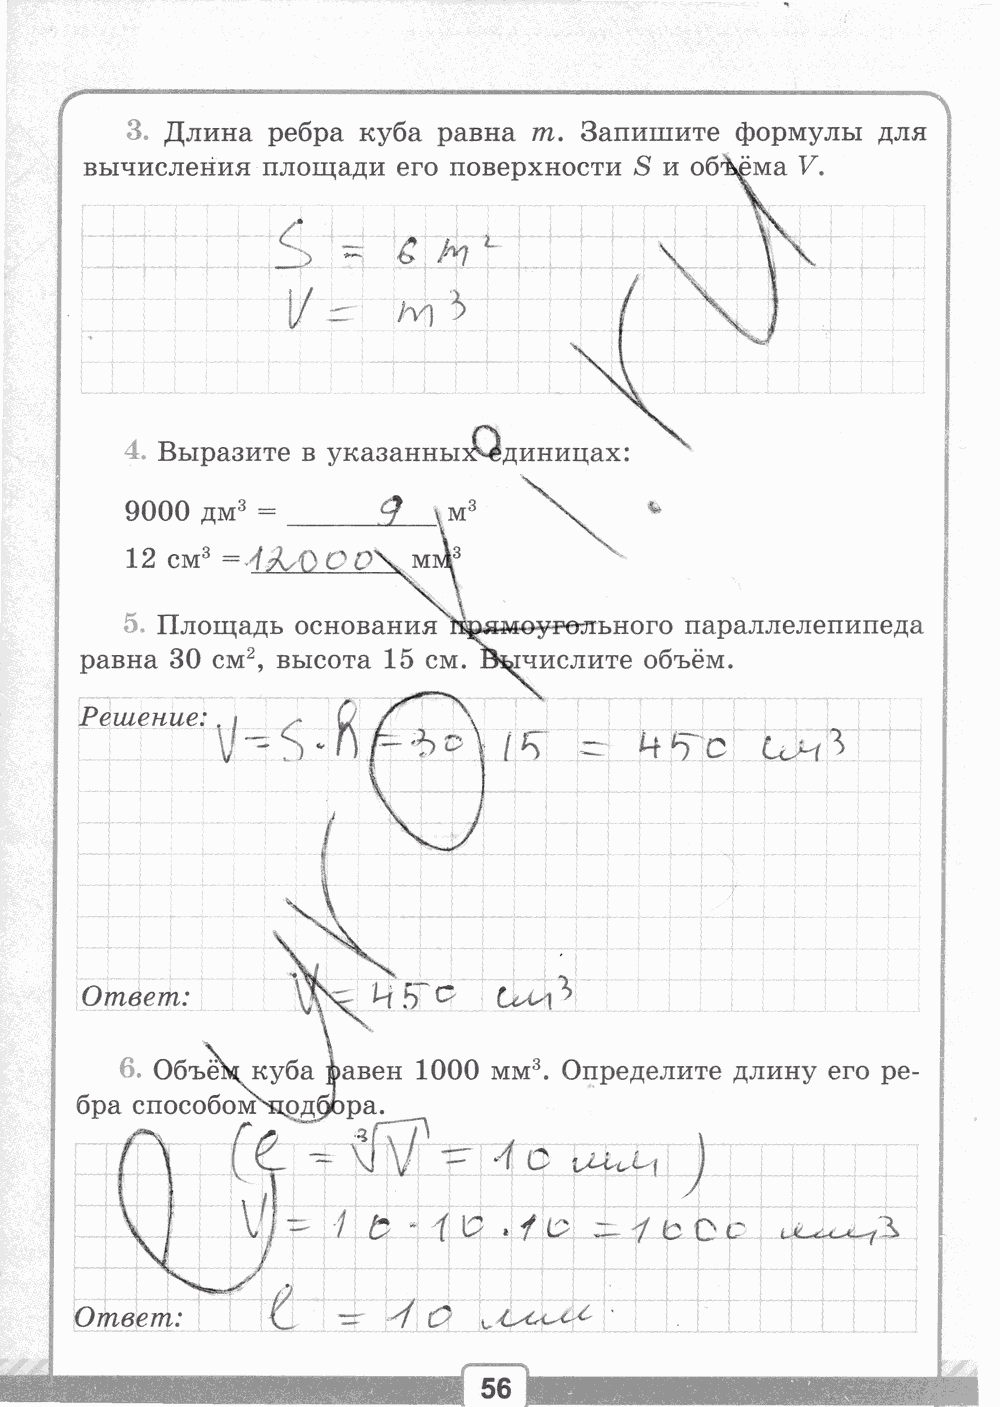 3. Длина ребра куба равна m. Запишите формулы для
вычисления площади его поверхности S и объёма V.
S = 6 m²
V = m³
4. Выразите в указанных единицах:
9000 дм³ = 9 м³
12 см³ = 12000 мм³
5. Площадь основания прямоугольного параллелепипеда
равна 30 см², высота 15 см. Вычислите объём.
Решение: V = S · h = 30 · 15 = 450 см³
Ответ: V = 450 см³
6. Объём куба равен 1000 мм³. Определите длину его ре-
бра способом подбора.
(l = ³√V = 10 мм)
V = 10 · 10 · 10 = 1000 мм³
Ответ: l = 10 мм
56